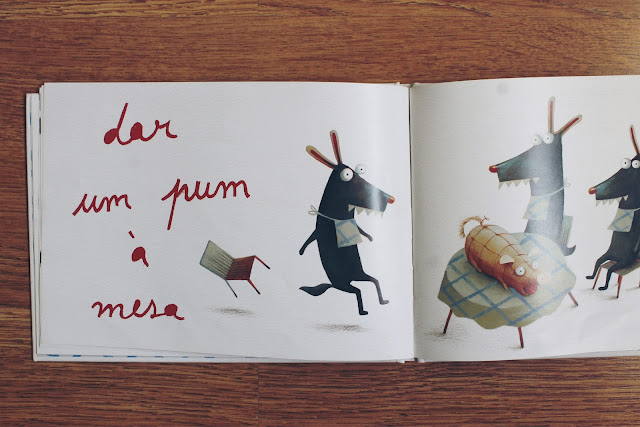 dar
um pum
à
mesa